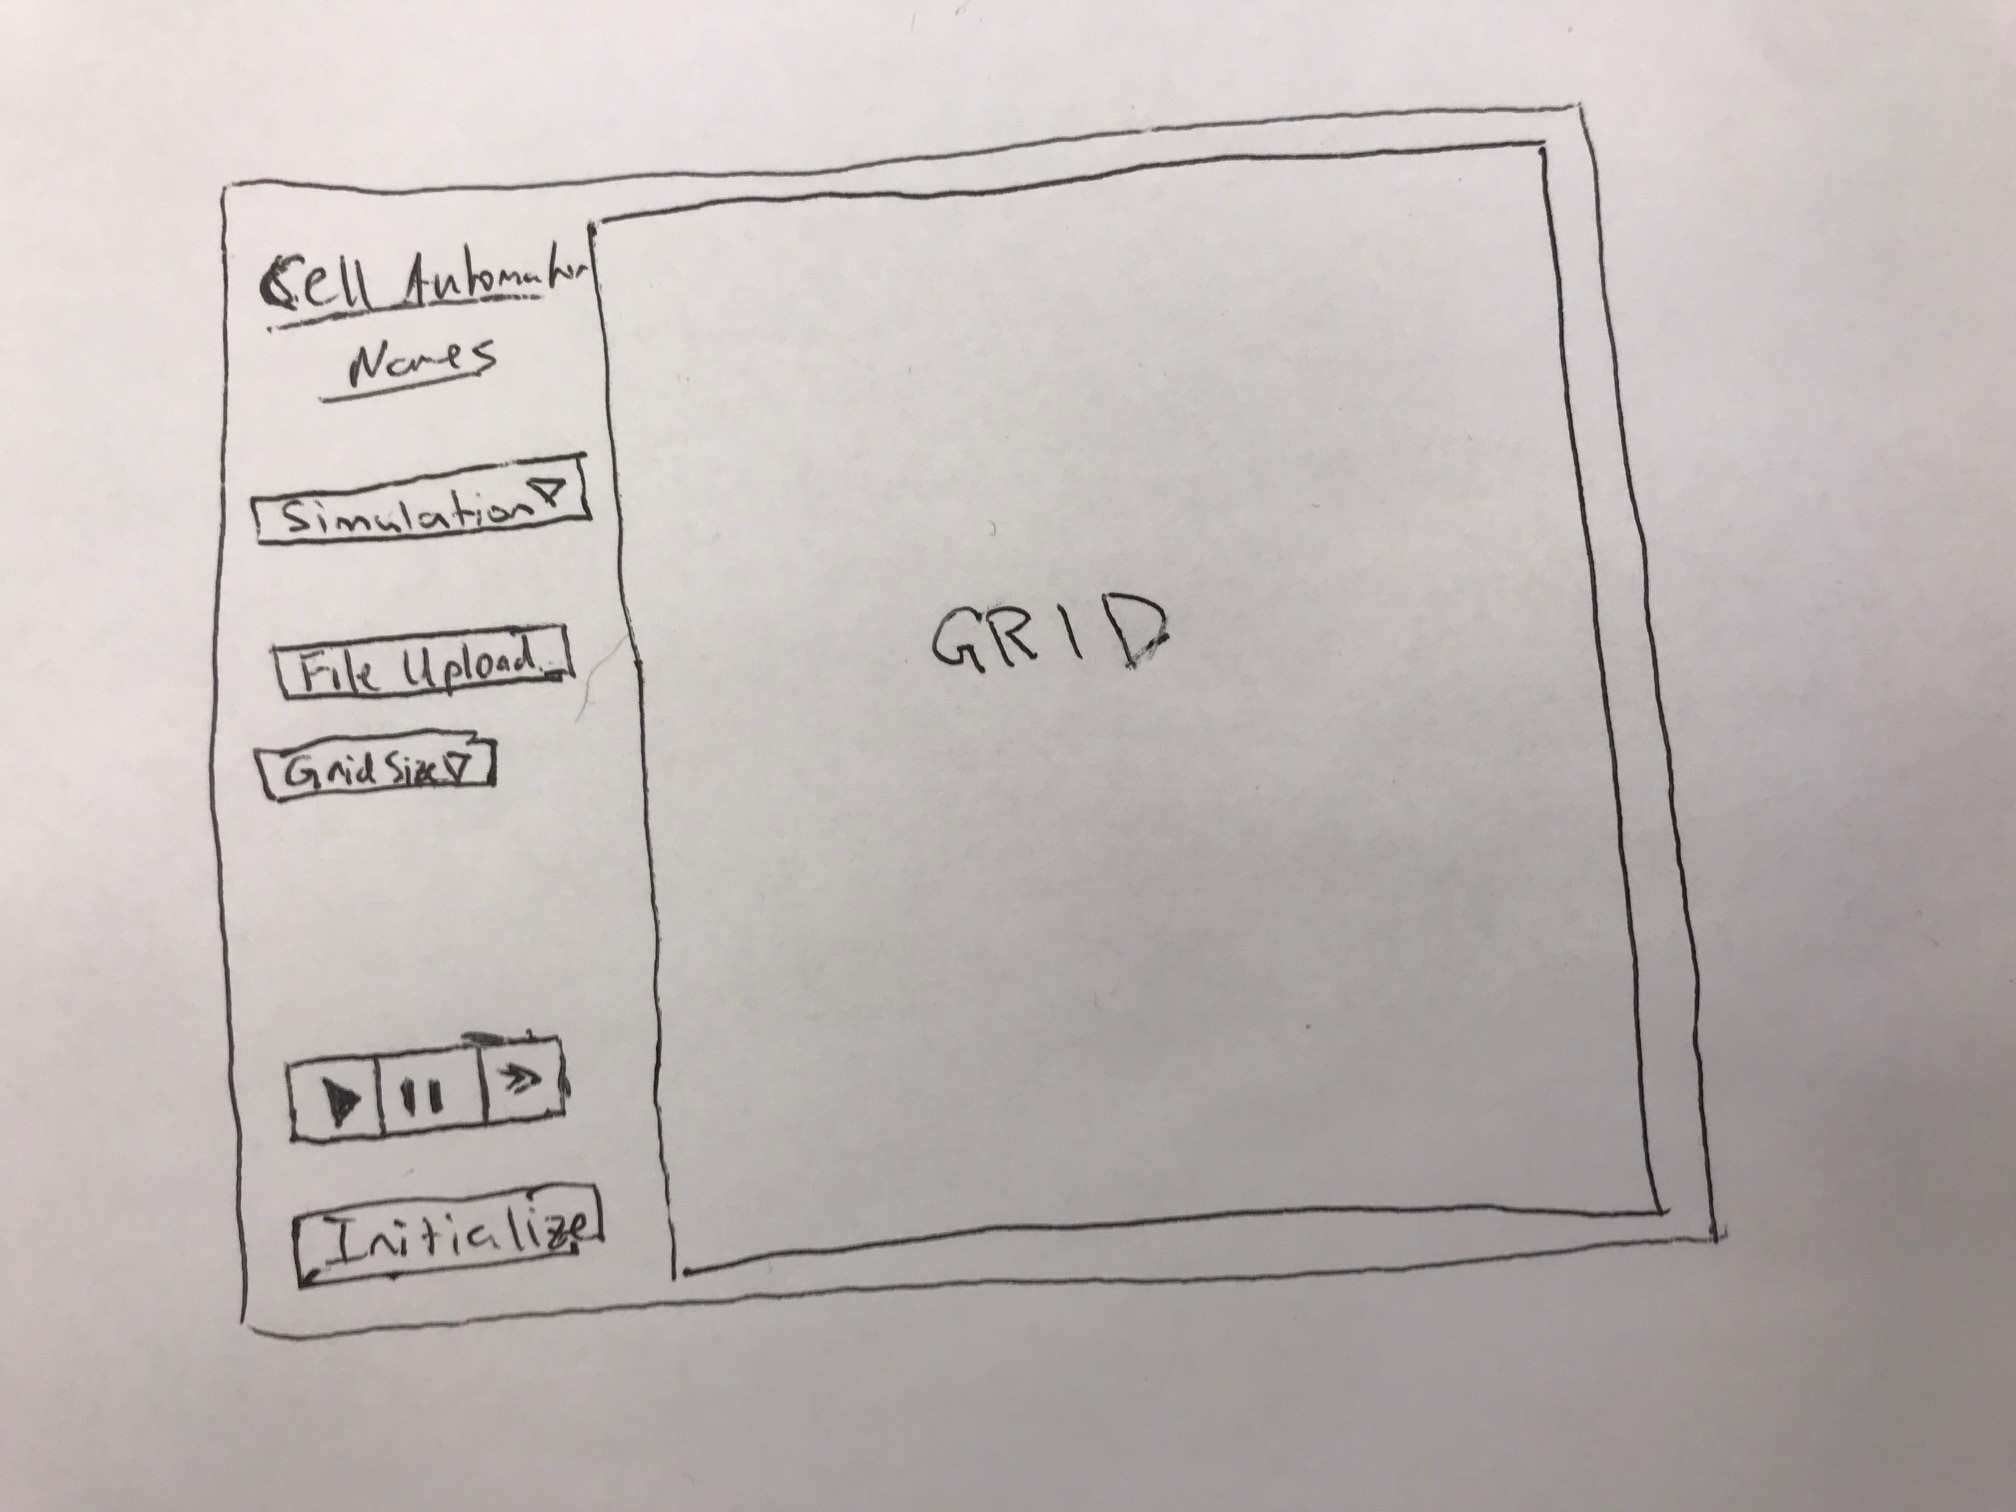 Cell Automation
Names
Simulation
File Upload
Grid Size
Initialize
GRID